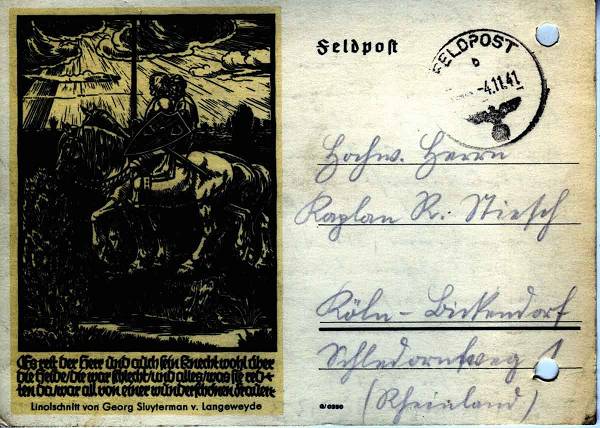 Es reit der Herr und auch sein Knecht wohl über
die Heide/die war schlecht/und alles/was sie red=
ten da/war all von einer wunderschönen Frauen
Linolschnitt von Georg Sluyterman v. Langeweyde
Feldpost
FELDPOST
b
-4.11.41
Hochw. Herrn
Kaplan R. Stiesch
Köln - Bickendorf
Schledornweg 1
(Rheinland)